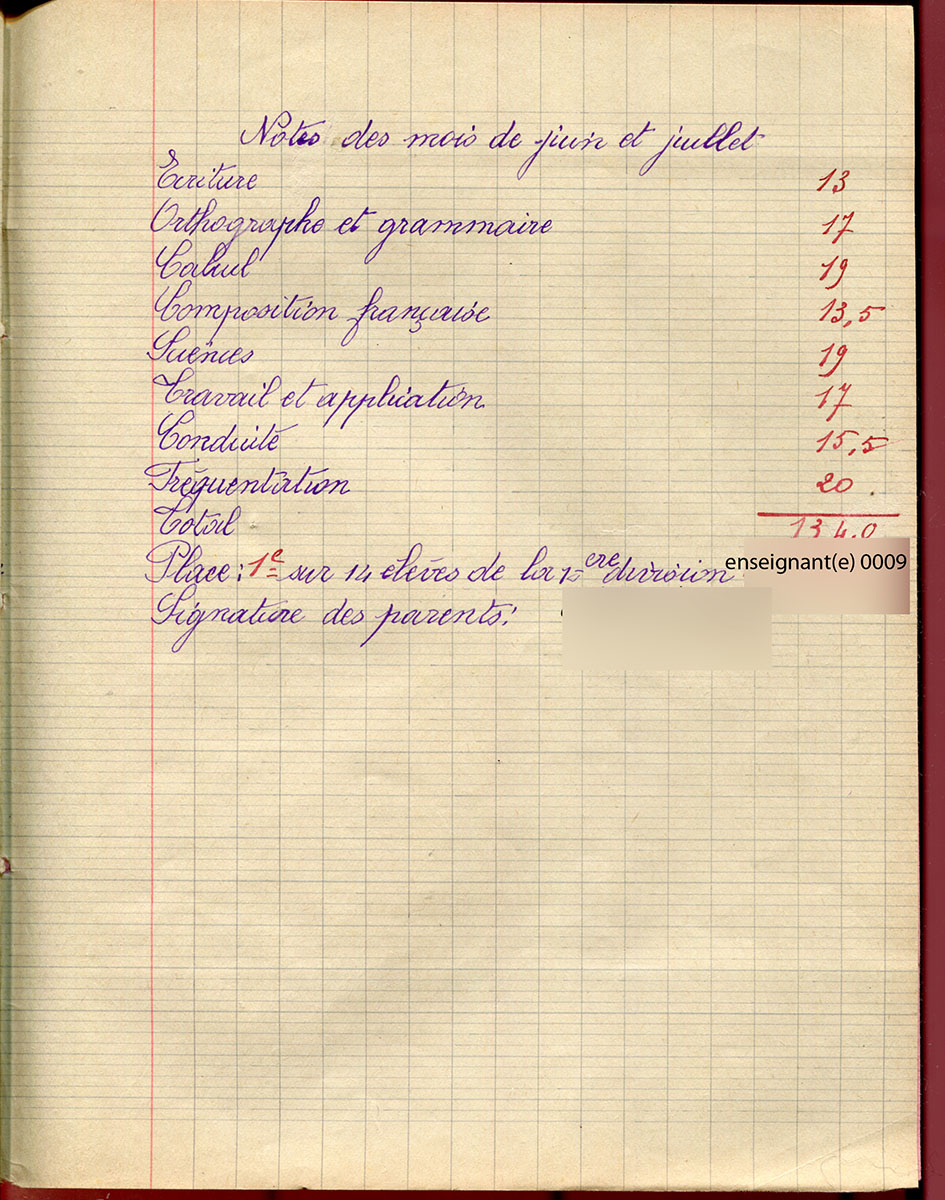 Notes des mois de juin et juillet
Ecriture 13
Orthographe et grammaire 17
Calcul 19
Composition française 13,5
Sciences 19
Travail et application 17
Conduite 15,5
Fréquentation 20
Total 134.0
Place : 1e sur 14 elèves de la 1ere division enseignant(e) 0009
Signature des parents :